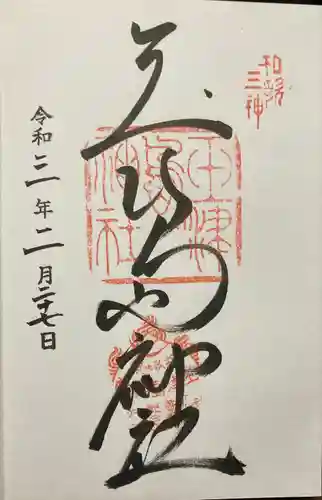 和歌
三神
玉津島神社
玉津
島
神社
令和三年二月二十七日